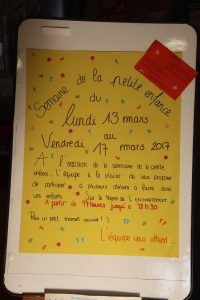 Semaine de la petite enfance
du
lundi 13 mars
au
Vendredi 17 mars 2017
A l'occasion de la semaine de la petite
enfance, l'équipe a le plaisir de vous proposer
de participer à plusieurs ateliers à faire avec
vos enfants sur le thème de L'ENCHANTEMENT
A partir de 17 heures jusqu'à 18h30
Pour un petit moment convivial !
L'équipe vous attend